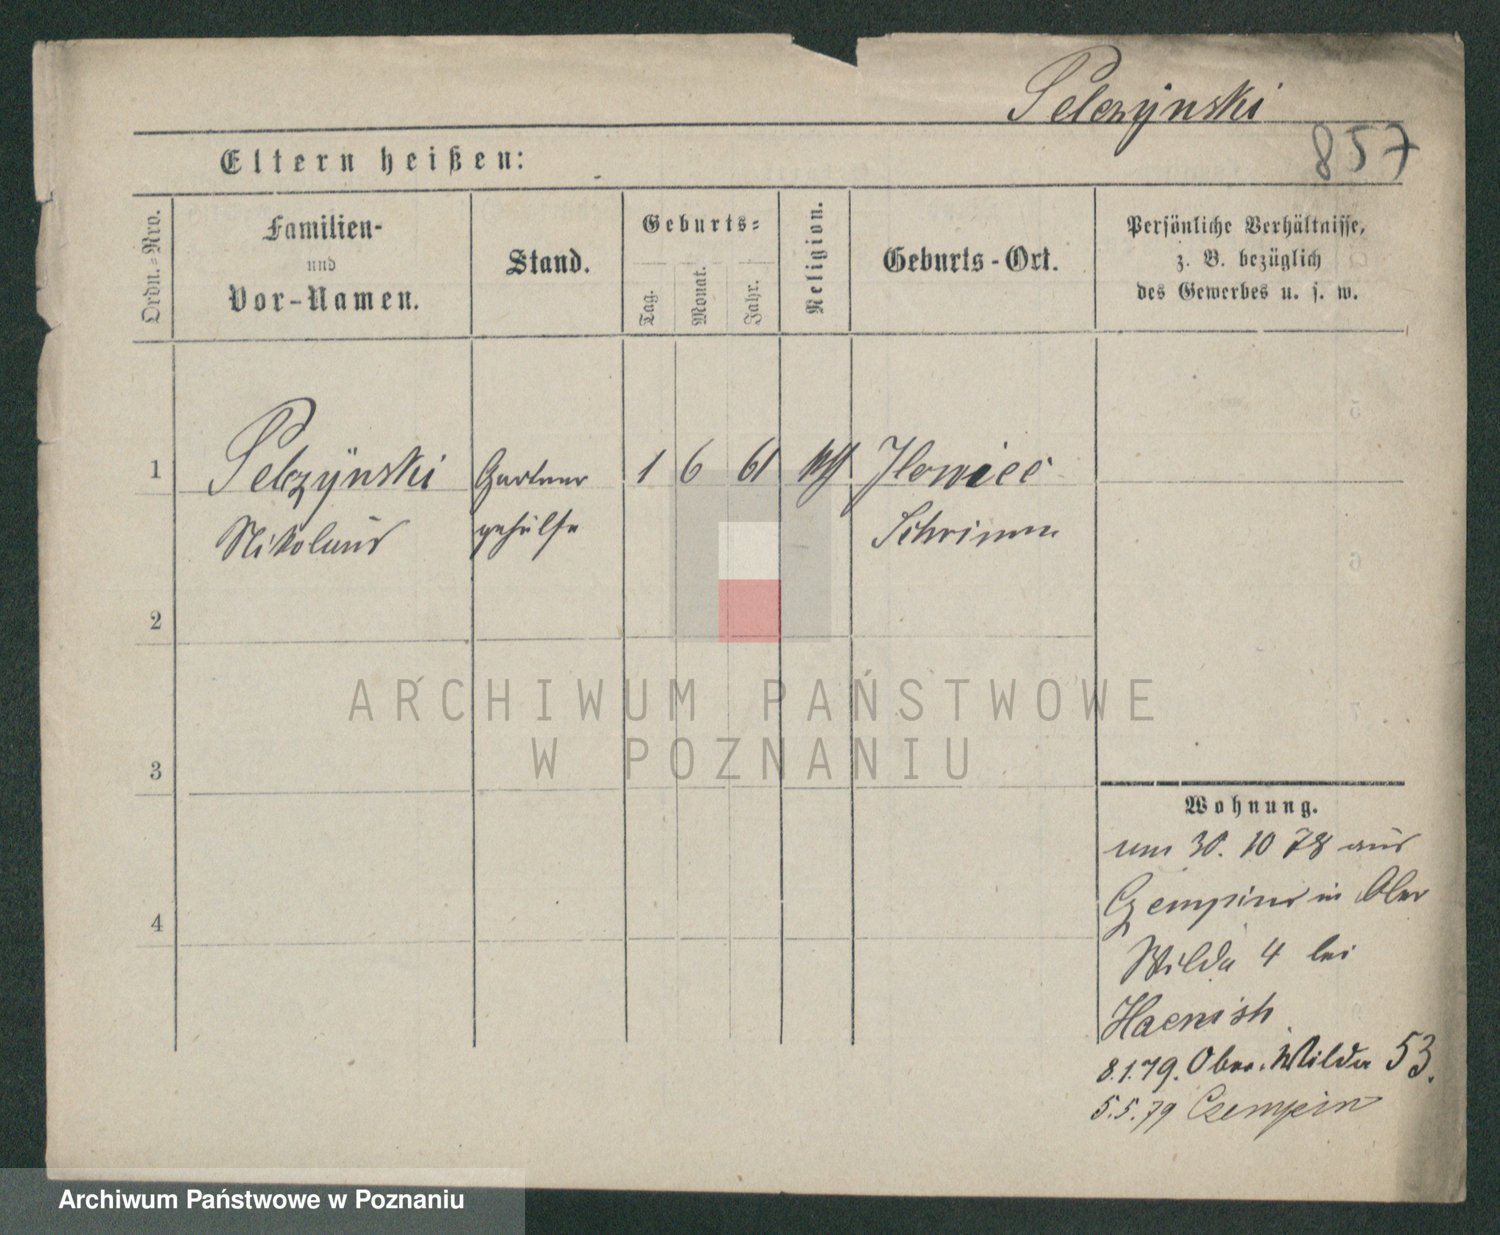 Pelczynski
857
Eltern heißen:
Ordn.-Nro.
Familien-
und
Vor-Namen.
Stand.
Geburts-
Tag.
Monat.
Jahr.
Religion.
Geburts-Ort.
Persönliche Verhältnisse,
z. B. bezüglich
des Gewerbes u. s. w.
1 Pelczynski Gartner 1 6 61 Ilowiec
Nikolaus gehülfe Schrimm
2
3
4
Wohnung.
30. 10 78 aus
Czempin in Ober
Wilda 4 bei
Haenish
8.1.79. Ober. Wilda 53.
5.5.79 Czempin
ARCHIWUM PAŃSTWOWE
W POZNANIU
Archiwum Państwowe w Poznaniu